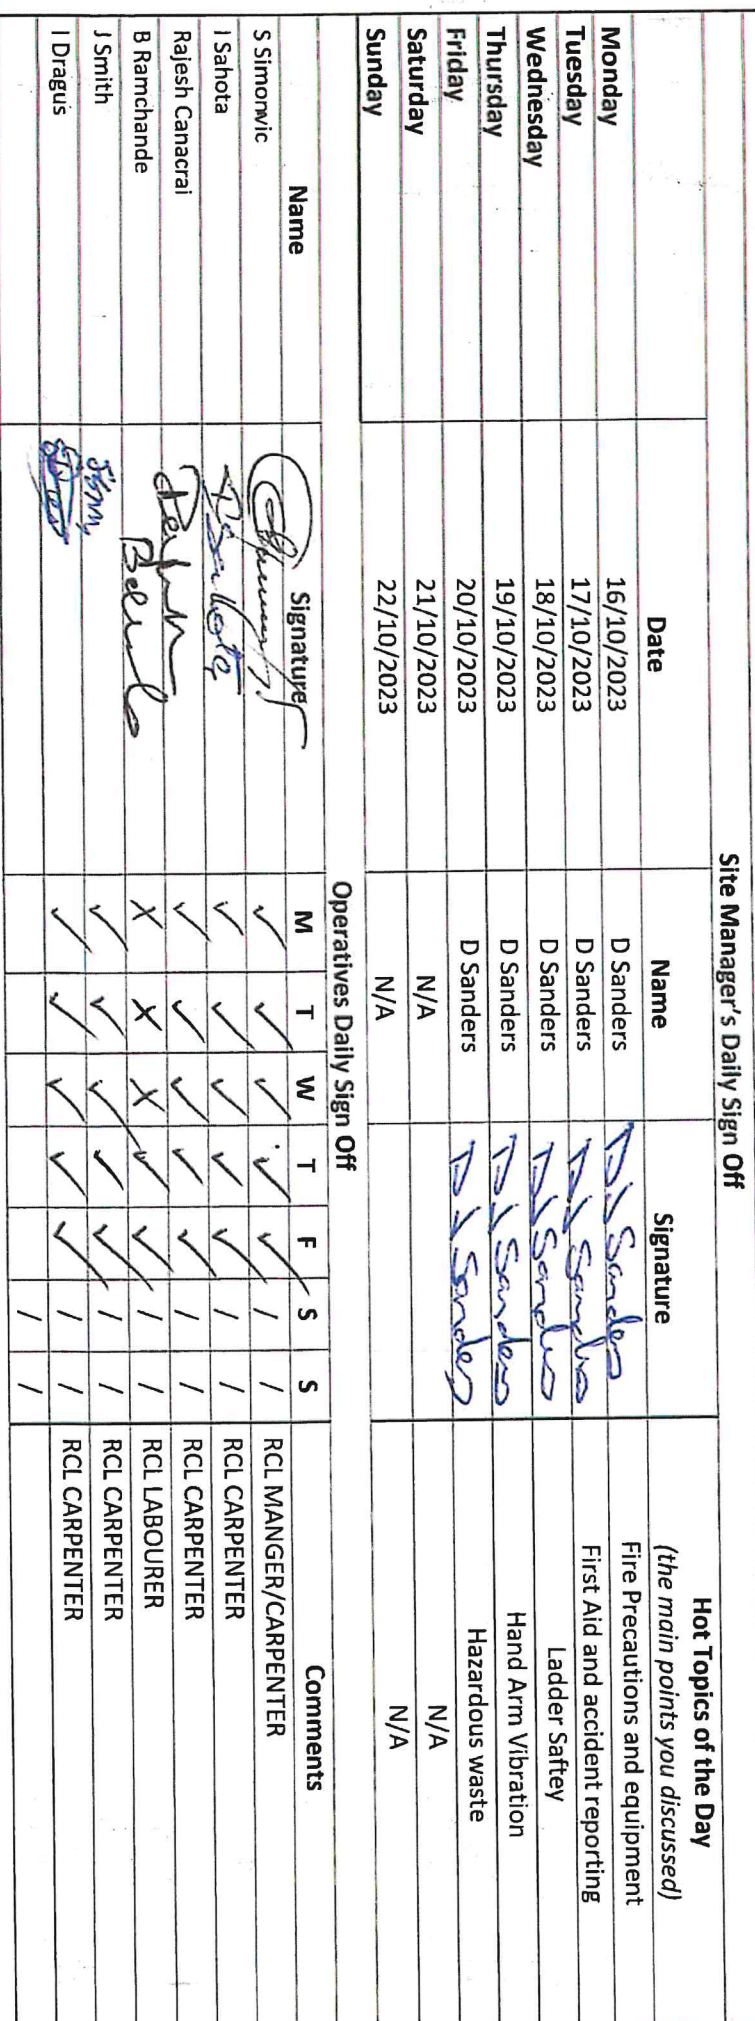 Site Manager's Daily Sign Off
Date Name Signature Hot Topics of the Day
(the main points you discussed)
Monday 16/10/2023 D Sanders D J Sanders Fire Precautions and equipment
Tuesday 17/10/2023 D Sanders D J Sanders First Aid and accident reporting
Wednesday 18/10/2023 D Sanders D J Sanders Ladder Saftey
Thursday 19/10/2023 D Sanders D J Sanders Hand Arm Vibration
Friday 20/10/2023 D Sanders D J Sanders Hazardous waste
Saturday 21/10/2023 N/A N/A
Sunday 22/10/2023 N/A N/A
Operatives Daily Sign Off
Name Signature M T W T F S S Comments
S Simonvic ✓ ✓ ✓ ✓ ✓ / / RCL MANGER/CARPENTER
I Sahota I Sahota ✓ ✓ ✓ ✓ ✓ / / RCL CARPENTER
Rajesh Canacrai ✓ ✓ ✓ ✓ ✓ / / RCL CARPENTER
B Ramchande X X X ✓ ✓ / / RCL LABOURER
J Smith ✓ ✓ ✓ ✓ ✓ / / RCL CARPENTER
I Dragus ✓ ✓ ✓ ✓ ✓ / / RCL CARPENTER
/ /